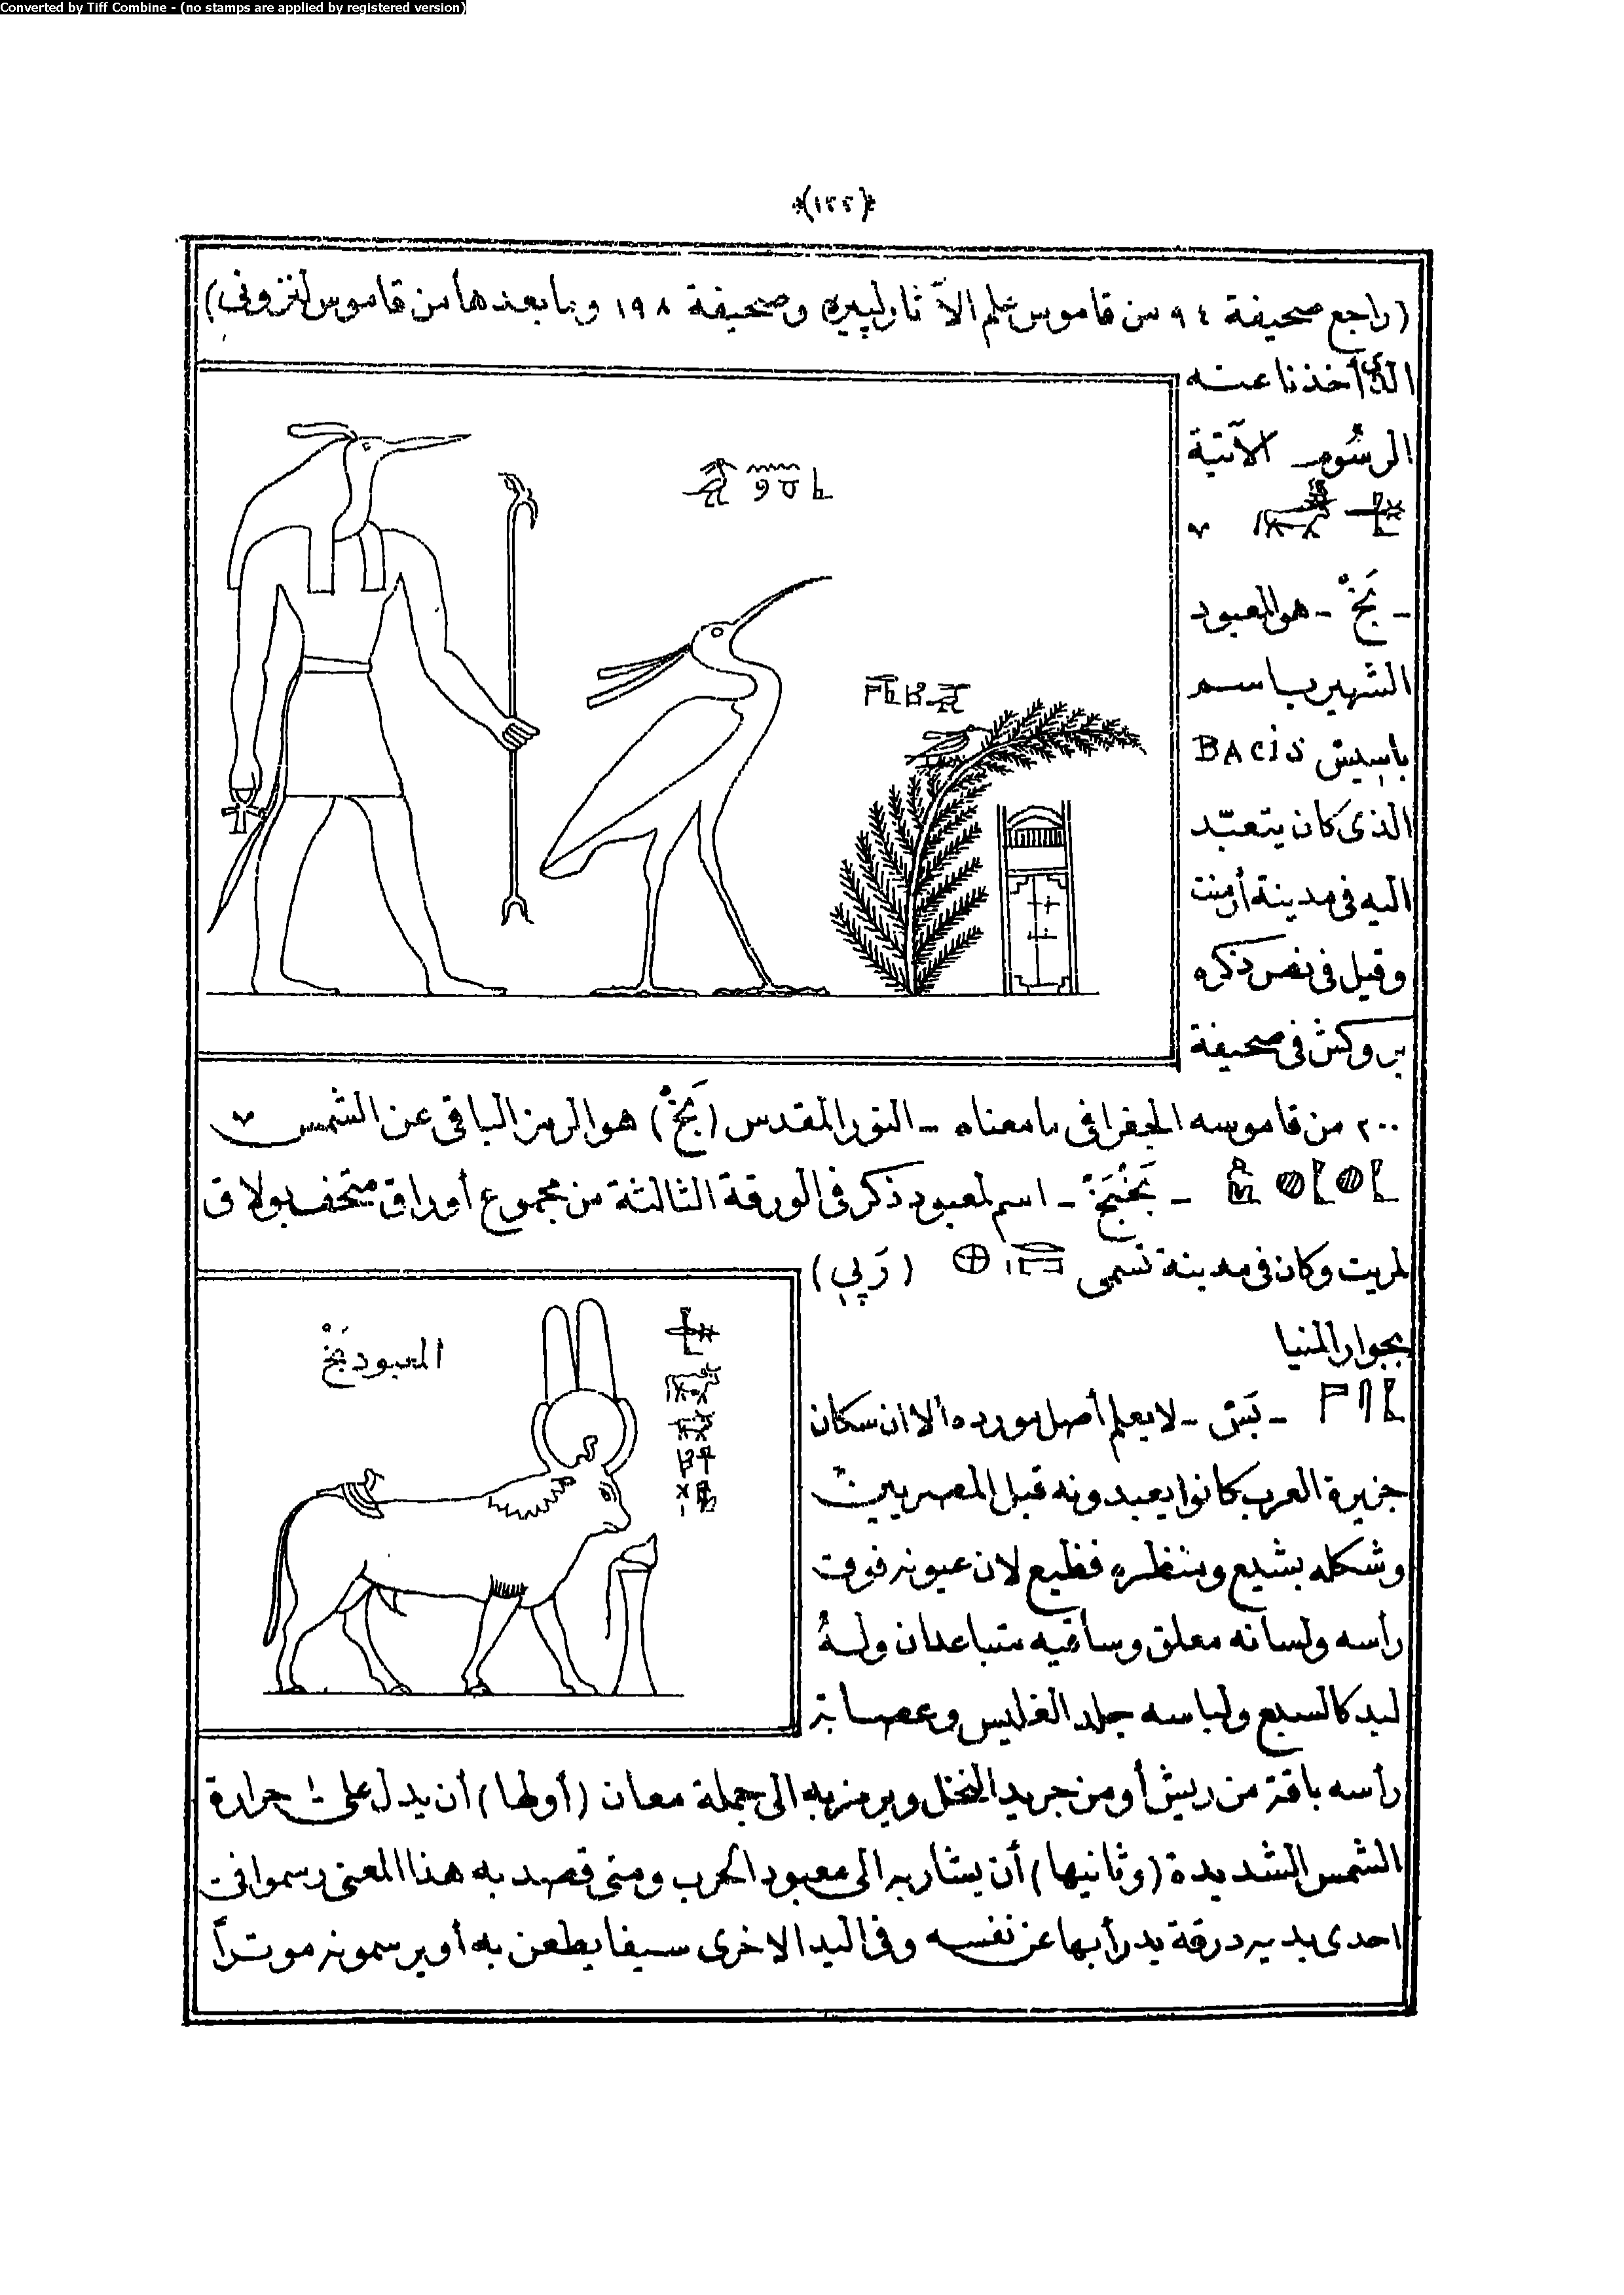 Converted by Tiff Combine - (no stamps are applied by registered version)
(١٢٢)
(راجع صحيفة ٩٤ من قاموس علم الآثار لپييره وصحيفة ١٩٨ وما بعدها من قاموس لنزونى)
الذى أخذنا عنه
الرسُوم الآتية
- بَخْ - هو المعبود
الشهير باسم
باسيش BACIS
الذى كان يتعبّد
اليه فى مدينة أرمنت
وقيل فى نص ذكره
بروكش فى صحيفة
٢٠٠ من قاموسه الجغرافى ما معناه - الثور المقدس (بَخْ) هو الرمز الباقى عن الشمس
- بَخْبَخْ - اسم لمعبود ذكر فى الورقة الثالثة من مجموع أوراق متحف بولاق
لمريت وكان فى مدينة تسمى (رَپِى)
بجوار المنيا
المعبود بَخْ
- بَسْ - لا يعلم أصل مورده ألا ان سكان
جزيرة العرب كانوا يعبدونه قبل المصريين
وشكله بشيع ومنظره فظيع لان عيونه فوق
رأسه ولسانه معلق وساقيه متباعدان ولهُ
لبد كالسبع ولباسه جلد الغليس وعصابة
رأسه باقة من ريش أو من جريد النخل ويرمز به الى جملة معان (أولها) أن يدل على حرارة
الشمس الشديدة (وثانيها) أن يشار به الى معبود الحرب ومتى قصد به هذا المعنى رسموا فى
احدى يديه درقة يدرأ بها عن نفسه وفى اليد الاخرى سيفا يطعن به أو يرسمونه موتراً